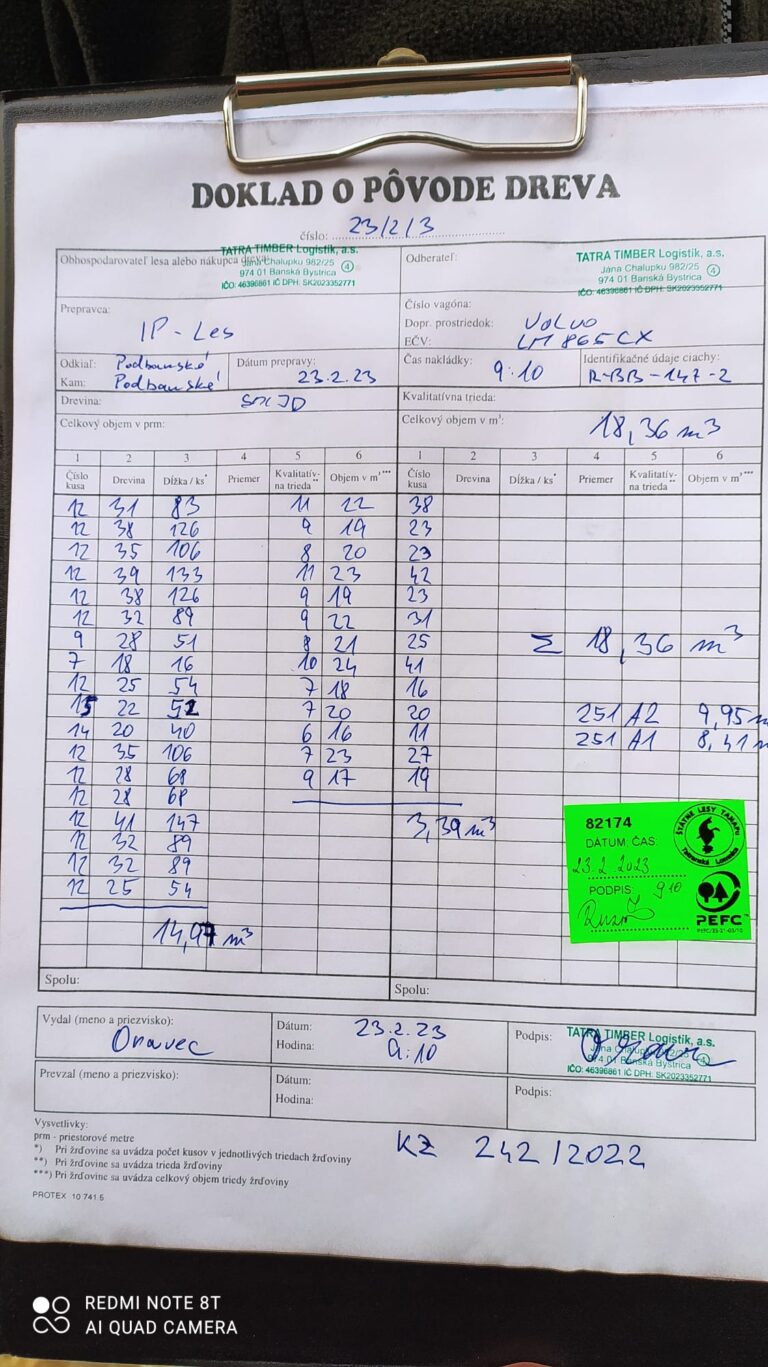 DOKLAD O PÔVODE DREVA
číslo: 23/2/3
Obhospodarovateľ lesa alebo nákupca dreva:
TATRA TIMBER Logistik, a.s.
Jána Chalupku 982/25
974 01 Banská Bystrica
IČO: 46396861 IČ DPH: SK2023352771
4
Odberateľ:
TATRA TIMBER Logistik, a.s.
Jána Chalupku 982/25
974 01 Banská Bystrica
IČO: 46396861 IČ DPH: SK2023352771
4
Prepravca:
IP - Les
Číslo vagóna:
Dopr. prostriedok: Volvo
EČV: LM865CX
Odkiaľ: Podbanské
Kam: Podbanské
Dátum prepravy:
23.2.23
Čas nakládky:
9:10
Identifikačné údaje ciachy:
R-BB-147-2
Drevina: SM, JD
Kvalitatívna trieda:
Celkový objem v prm:
Celkový objem v m³: 18,36 m³
1 2 3 4 5 6 1 2 3 4 5 6
Číslo kusa Drevina Dĺžka / ks* Priemer Kvalitatív- na trieda** Objem v m³*** Číslo kusa Drevina Dĺžka / ks* Priemer Kvalitatív- na trieda** Objem v m³***
12 31 83 11 22 38
12 38 126 9 19 23
12 35 106 8 20 23
12 39 133 11 23 42
12 38 126 9 19 23
12 32 89 9 22 31
9 28 51 8 21 25 Σ 18,36 m³
7 18 16 10 24 41
12 25 54 7 18 16
15 22 52 7 20 20 251 A2 9,95 m
14 20 40 6 16 11 251 A1 8,41 m
12 35 106 7 23 27
12 28 68 9 17 19
12 28 68
12 41 147 3,39 m³
12 32 89
12 32 89
12 25 54
14,97 m³
82174
DÁTUM, ČAS:
23.2.2023
PODPIS: 910
ŠTÁTNE LESY TANAPU
Tatranská Lomnica
PEFC
PEFC/23-21-03/10
Spolu:
Spolu:
Vydal (meno a priezvisko):
Oravec
Dátum: 23.2.23
Hodina: 9:10
Podpis:
TATRA TIMBER Logistik, a.s.
Jána Chalupku 982/25
974 01 Banská Bystrica
IČO: 46396861 IČ DPH: SK2023352771
4
Prevzal (meno a priezvisko):
Dátum:
Hodina:
Podpis:
Vysvetlivky:
prm - priestorové metre
*) Pri žrďovine sa uvádza počet kusov v jednotlivých triedach žrďoviny
**) Pri žrďovine sa uvádza trieda žrďoviny
***) Pri žrďovine sa uvádza celkový objem triedy žrďoviny
PROTEX 10 741 5
KZ 242/2022
REDMI NOTE 8T
AI QUAD CAMERA